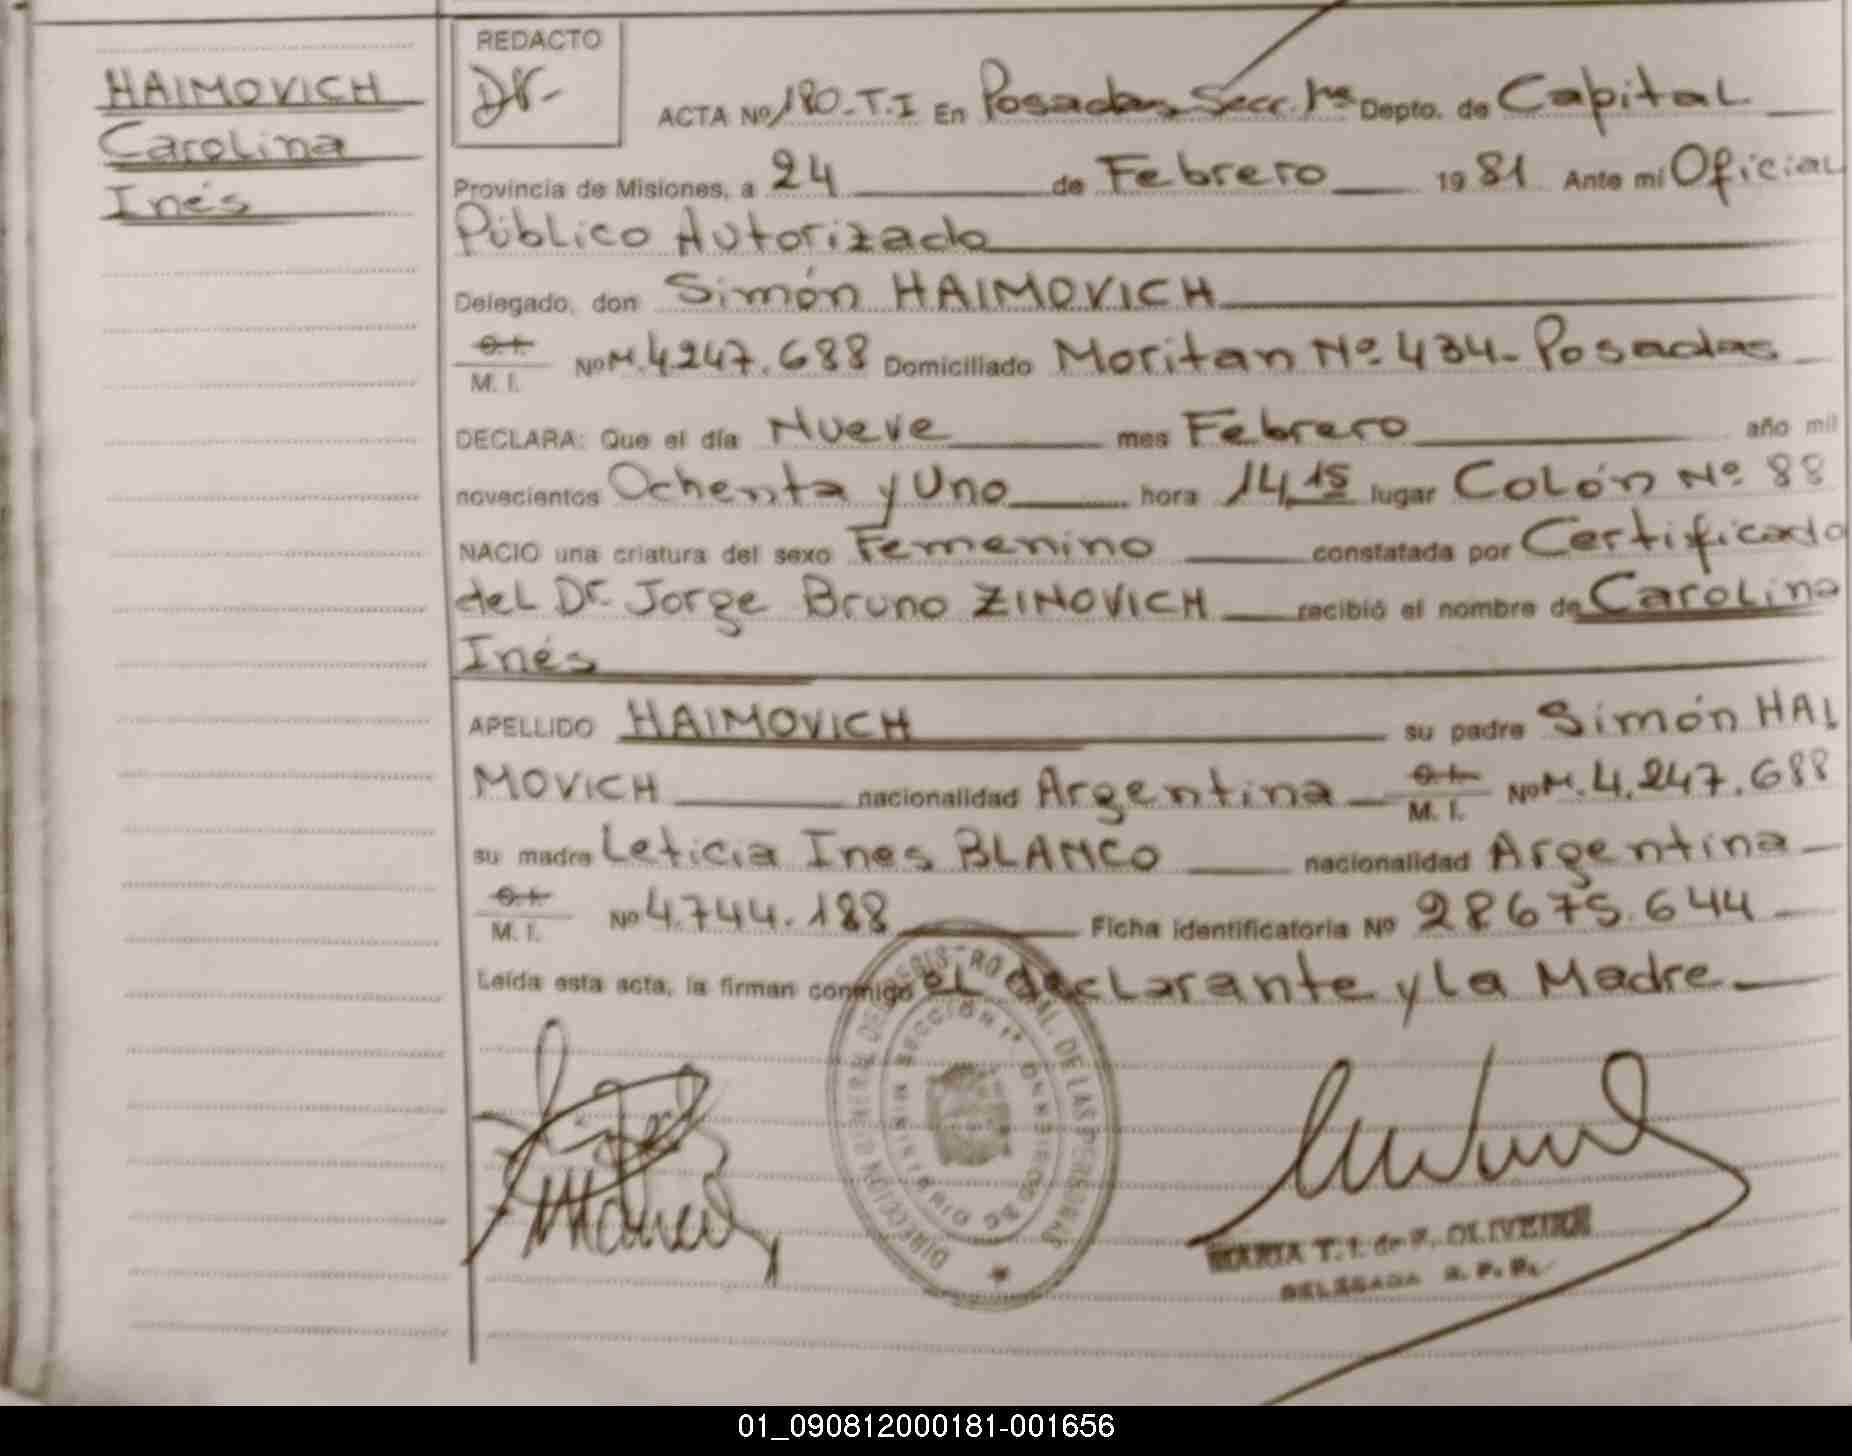 HAIMOVICH
Carolina
Inés
REDACTO
ACTA Nº 180-T.I En Posadas, Secc. 1ra Depto. de Capital
Provincia de Misiones, a 24 de Febrero 1981 Ante mí Oficial
Público Autorizado
Delegado, don Simón HAIMOVICH
C.I.
M. I. Nº M.4.247.688 Domiciliado Moritan Nº 434- Posadas
DECLARA: Que el día Nueve mes Febrero año mil
novecientos Ochenta y Uno hora 14,15 lugar Colón Nº 88
NACIO una criatura del sexo Femenino constatada por Certificado
del Dr. Jorge Bruno ZINOVICH recibió el nombre de Carolina
Inés
APELLIDO HAIMOVICH su padre Simón HAI
MOVICH nacionalidad Argentina C.I. M. I. Nº M.4.247.688
su madre Leticia Ines BLANCO nacionalidad Argentina
C.I.
M. I. Nº 4.744.188 Ficha identificatoria Nº 28675.644
Leída esta acta, la firman conmigo el declarante y la Madre
DIRECCION GENERAL DEL REGISTRO DE LAS PERSONAS
SECCIÓN 1ª
MARIA T. I. de F. OLIVEIRA
DELEGADA R. P. P.
01_090812000181-001656